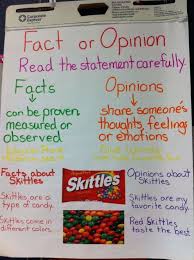 Fact or Opinion
Read the statement carefully.
Facts
Opinions
can be proven,
measured or
observed
share someone's
thoughts, feelings
or emotions
Facts about
Skittles
Skittles are a
type of candy.
Skittles come in
different colors.
Skittles
Opinions about
Skittles
Skittles are my
favorite candy.
Red Skittles
taste the best